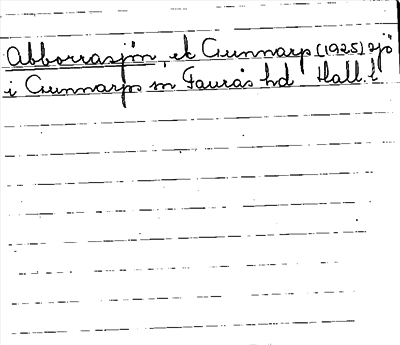 Abborrasjön, ek Gunnarp (1925) sjö
i Gunnarps sn Faurås hd Hall. l.